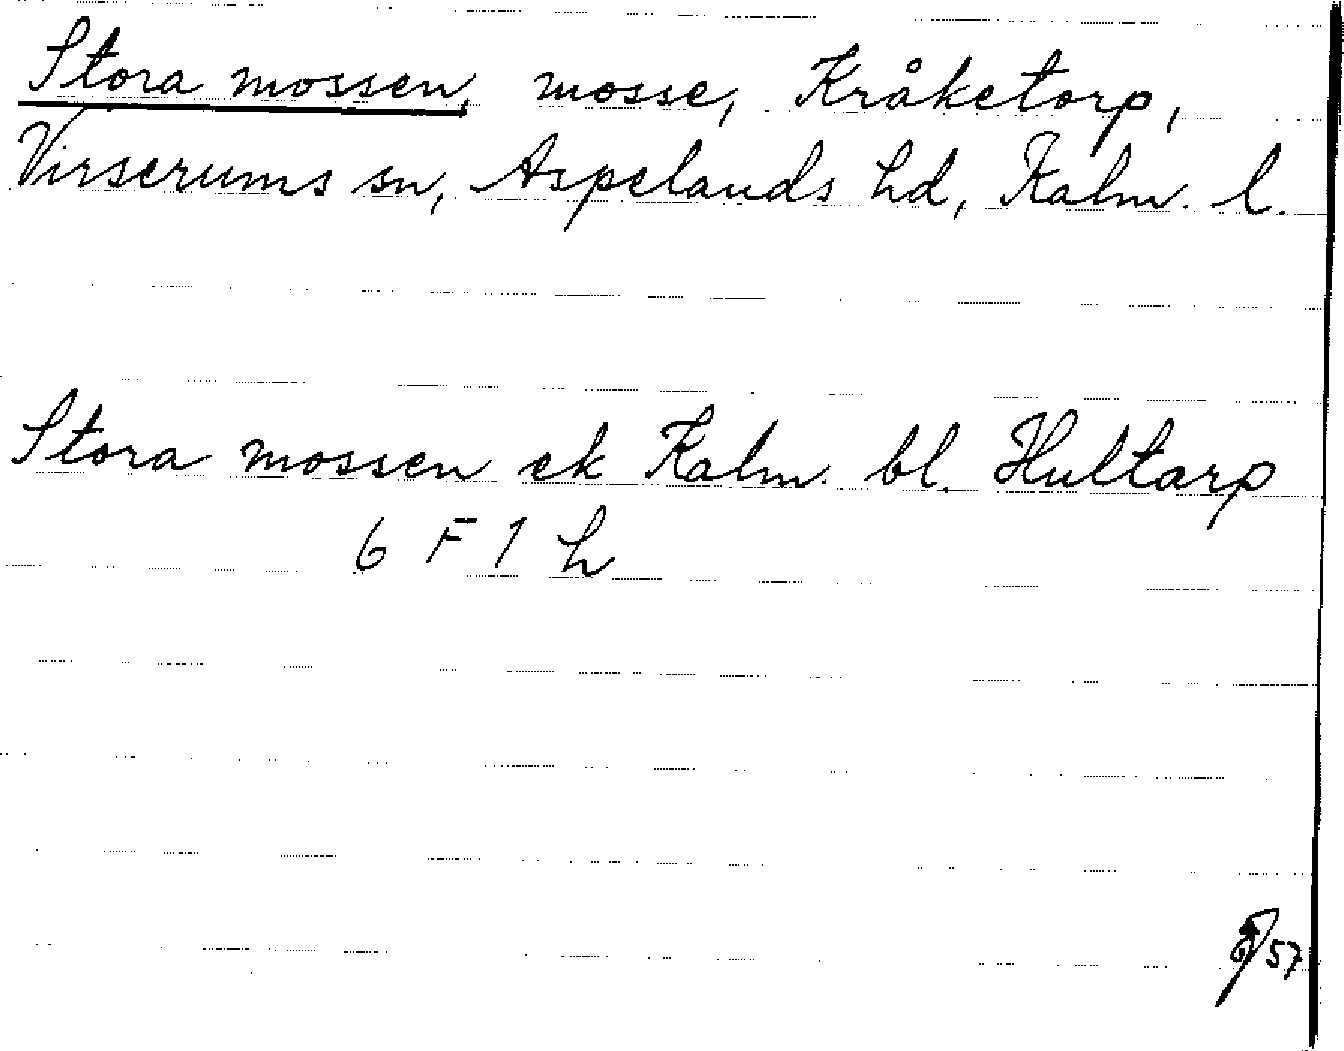 Stora mossen, mosse, Kråketorp,
Virserums sn, Aspelands hd, Kalm. l.
Stora mossen ek Kalm. bl. Hultarp
6 F 1 h
57